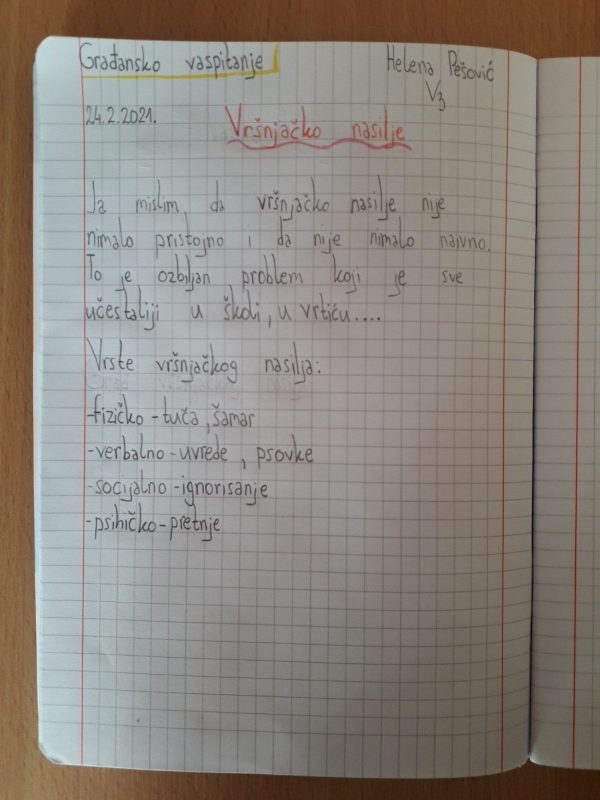 Građansko vaspitanje
Helena Pešović
V3
24.2.2021.
Vršnjačko nasilje
Ja mislim da vršnjačko nasilje nije
nimalo pristojno i da nije nimalo naivno.
To je ozbiljan problem koji je sve
učestaliji u školi, u vrtiću....
Vrste vršnjačkog nasilja:
-fizičko - tuča, šamar
-verbalno - uvrede, psovke
-socijalno - ignorisanje
-psihičko - pretnje